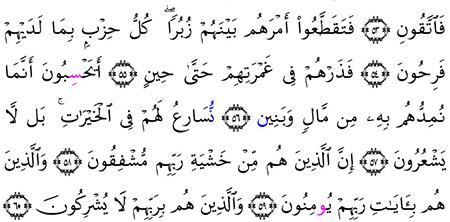 فَٱتَّقُونِ ۝٥٣ فَتَقَطَّعُوٓا۟ أَمْرَهُم بَيْنَهُمْ زُبُرًا ۖ كُلُّ حِزْبٍۭ بِمَا لَدَيْهِمْ
فَرِحُونَ ۝٥٤ فَذَرْهُمْ فِى غَمْرَتِهِمْ حَتَّىٰ حِينٍ ۝٥٥ أَتَحْسِبُونَ أَنَّمَا
نُمِدُّهُم بِهِۦ مِن مَّالٍ وَبَنِين ۝٥٦ نُّسَارِعُ لَهُمْ فِى ٱلْخَيْرَٰتِ ۚ بَل لَّا
يَشْعُرُونَ ۝٥٧ إِنَّ ٱلَّذِينَ هُم مِّنْ خَشْيَةِ رَبِّهِم مُّشْفِقُونَ ۝٥٨ وَٱلَّذِينَ
هُم بِـَٔايَٰتِ رَبِّهِمْ يُومِنُونَ ۝٥٩ وَٱلَّذِينَ هُم بِرَبِّهِمْ لَا يُشْرِكُونَ ۝٦٠